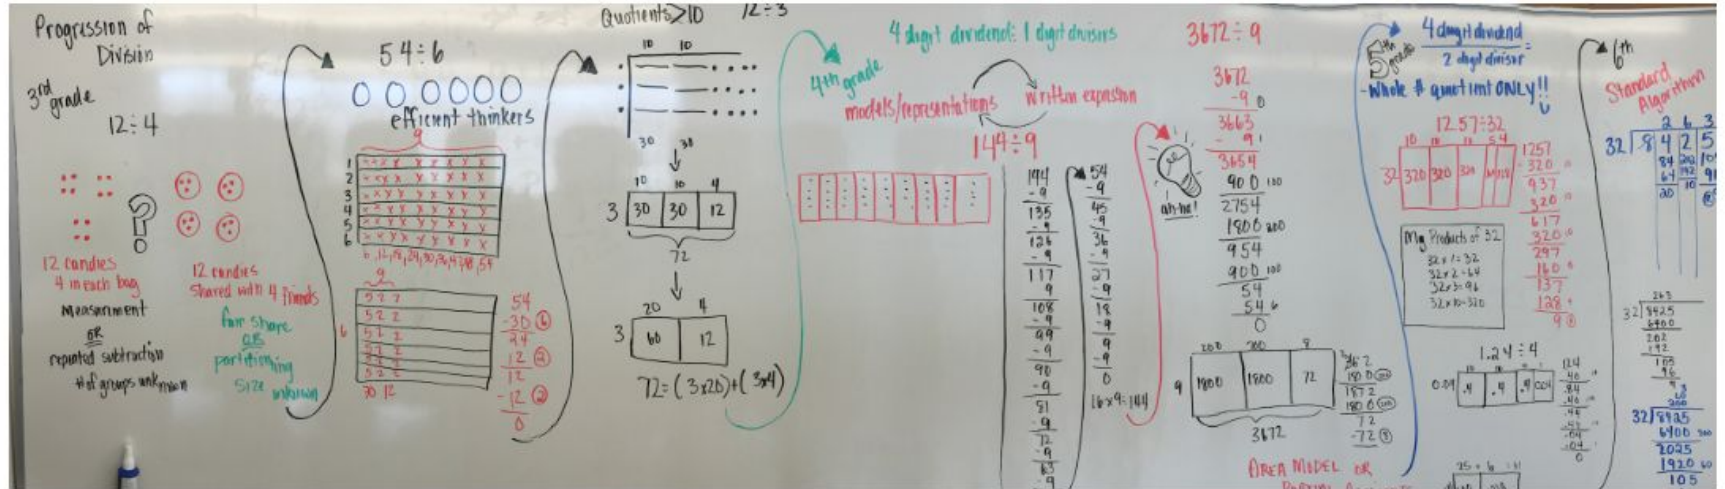 Progression of
Division
3rd grade
12÷4
?
12 candies
4 in each bag
measurment
OR
repeated subtraction
# of groups unknown
12 candies
shared with 4 friends
fair share
OR
partitioning
size unknown
54÷6
efficient thinkers
9
1
2
3
4
5
6
6,12,18,24,30,36,42,48,54
9
5 2 2
5 2 2
5 2 2
5 2 2
5 2 2
5 2 2
6
30 12
54
-30 6
24
12 2
12
-12 2
0
Quotients>10
12÷3
10 10
30 30
10 10 4
3 30 30 12
72
20 4
3 60 12
72=(3x20)+(3x4)
4th grade
4 digit dividend÷1 digit divisors
models/representations
written expression
144÷9
144
-9
135
-9
126
-9
117
9
108
-9
99
-9
90
-9
81
-9
72
-9
63
-9
54
-9
45
-9
36
-9
27
-9
18
-9
9
-9
0
16x9=144
ah-ha!
3672÷9
3672
-9
3663
-9 1
3654
900 100
2754
1800 200
954
900 100
54
54 6
0
200 200 8
9 1800 1800 72
3672
1800
1872
1800
72
-72 8
AREA MODEL OR
5th grade
4 digit dividend
2 digit divisor
=
-Whole # quotient ONLY!!
1257÷32
10 10 10 5 4
32 320 320 320
1257
-320
937
320
617
320
297
160
137
128
9
Mg Products of 32
32x1=32
32x2=64
32x3=96
32x10=320
1.24÷4
.4 .4 .4 0.04
124
.40
.84
.40
.44
.04
.04
0
6th
Standard
Algorithm
2 6 3
32 8 4 2 5
263
32 8425
6400
202
192
105
96
9
3
60
200
32 8425
6400 200
2025
1920 60
105